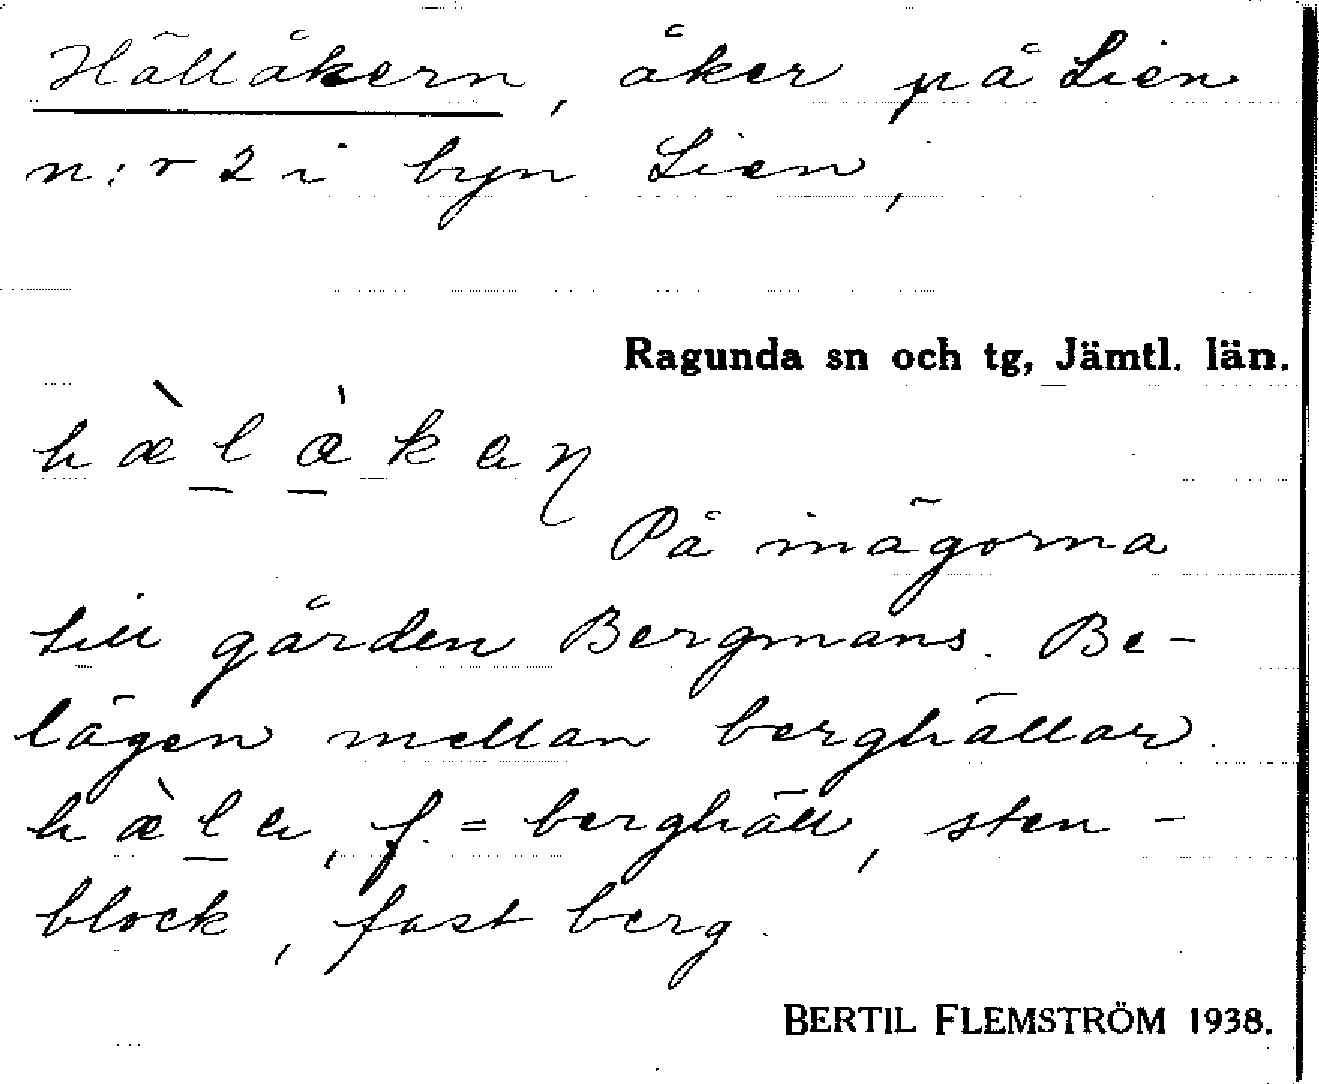 Hällåkern, åker på Lien
n:r 2 i byn Lien,
Ragunda sn och tg, Jämtl. län.
På inägorna
till gården Bergmans. Be-
lägen mellan berghällar.
hæ̀la, f. = berghäll, sten-
block, fast berg.
BERTIL FLEMSTRÖM 1938.